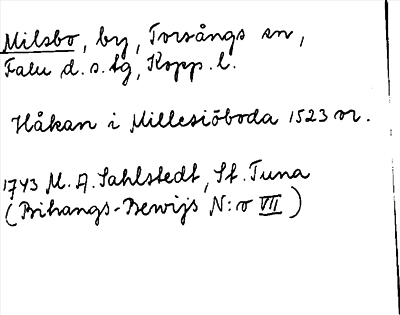 Milsbo, by, Torsångs sn,
Falu d.s. tg, Kopp. l.
Håkan i Millesiöboda 1523 or.
1743 M. A. Sahlstedt, St. Tuna
(Bihangs-Bewijs N:o VII)